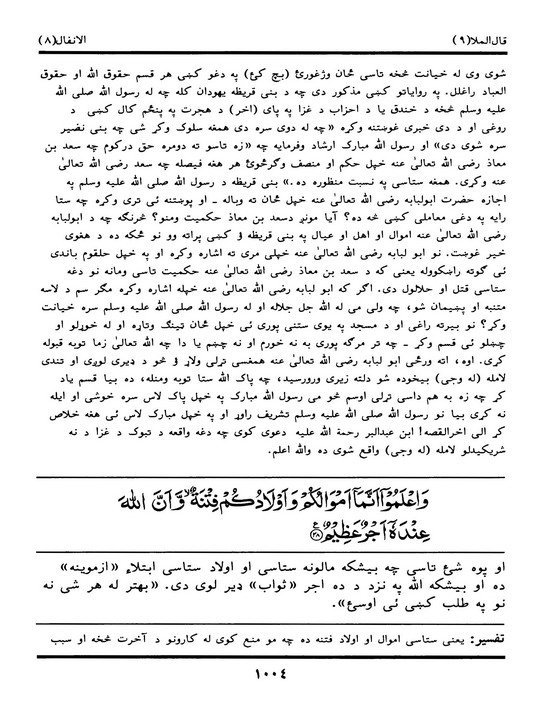 قال الملأ (٩) الانفال (٨)
شوی وی له خیانت څخه تاسی ځان وژغوری (بچ کئ) په دغو کښی هر قسم حقوق الله او حقوق
العباد راغلل. په روایاتو کښی مذکور دی چه د بنی قریظه یهودان کله چه له رسول الله صلی الله
علیه وسلم څخه د خندق یا د احزاب د غزا په پای (اخر) د هجرت په پنځم کال کښی د
روغی او د دی خبری غوښتنه وکړه «چه له دوی سره دی همغه سلوک وکړ شی چه بنی نضیر
سره شوی دی» او رسول الله مبارک ارشاد وفرمایه چه «زه تاسو ته دومره حق درکوم چه سعد بن
معاذ رضی الله تعالیٰ عنه خپل حکم او منصف وګرځوئ هر هغه فیصله چه سعد رضی الله تعالیٰ
عنه وکړی. همغه ستاسی په نسبت منظوره ده.» بنی قریظه د رسول الله صلی الله علیه وسلم په
اجازه حضرت ابولبابه رضی الله تعالیٰ عنه خپل ځان ته وباله ـ او پوښتنه ئی تری وکړه چه ستا
رایه په دغی معاملی کښی څه ده؟ آیا مونږ دسعد بن معاذ حکمیت ومنو؟ څرنګه چه د ابولبابه
رضی الله تعالیٰ عنه اموال او اهل او عیال په بنی قریظه ؤ کښی پراته وو نو ځکه ده د هغوی
خیر غوښت. نو ابو لبابه رضی الله تعالیٰ عنه خپلی مری ته اشاره وکړه او په خپل حلقوم باندی
ئی ګوته راښکوله یعنی که د سعد بن معاذ رضی الله تعالیٰ عنه حکمیت تاسی ومانه نو دغه
ستاسی قتل او حلالول دی. اګر که ابو لبابه رضی الله تعالیٰ عنه خپله اشاره وکړه مګر سم د لاسه
متنبه او پښیمان شو، چه ولی می له الله جل جلاله او له رسول الله صلی الله علیه وسلم سره خیانت
وکړ؟ نو بیرته راغی او د مسجد په یوی ستنی پوری ئی خپل ځان ټینګ وتاړه او له خوړلو او
چښلو ئی قسم وکړ ـ چه تر مرګه پوری به نه خورم او نه چښم یا دا چه الله تعالیٰ زما توبه قبوله
کړی. اوه، اته ورځی ابو لبابه رضی الله تعالیٰ عنه همغسی تړلی ولاړ ؤ څو د ډیری لوږی او تندی
لامله (له وجی) بیخوده شو دلته زیری ورورسید، چه پاک الله ستا توبه ومنله، ده بیا قسم یاد
کړ چه زه به هم داسی تړلی اوسم څو می رسول الله مبارک په خپل پاک لاس سره خوشی او ایله
نه کړی بیا نو رسول الله صلی الله علیه وسلم تشریف راوړ او په خپل مبارک لاس ئی هغه خلاص
کړ الی اخرالقصه! ابن عبدالبر رحمة الله علیه دعوی کوی چه دغه واقعه د تبوک د غزا د نه
شریکیدلو لامله (له وجی) واقع شوی ده والله اعلم.
وَاعْلَمُوْٓا اَنَّمَآ اَمْوَالُكُمْ وَاَوْلَادُكُمْ فِتْنَةٌ ۙ وَّاَنَّ اللّٰهَ
عِنْدَهٗٓ اَجْرٌ عَظِيْمٌ ؏ ﴿٢٨﴾
او پوه شئ تاسی چه بیشکه مالونه ستاسی او اولاد ستاسی ابتلاء «ازموینه»
ده او بیشکه الله په نزد د ده اجر «ثواب» ډیر لوی دی. «بهتر له هر شی نه
نو په طلب کښی ئی اوسئ».
تفسیر: یعنی ستاسی اموال او اولاد فتنه ده چه مو منع کوی له کارونو د آخرت څخه او سبب
١٠٠٤